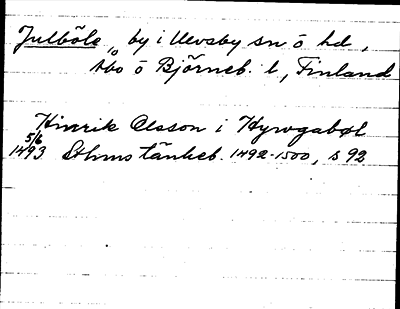 Julböle, by i Ulvsby sn o hd,
Åbo o Björneb. l, Finland
Hinrik Olsson i Hyrogabøl
5/6
1493 Sthms tänkeb. 1492-1500, s 92